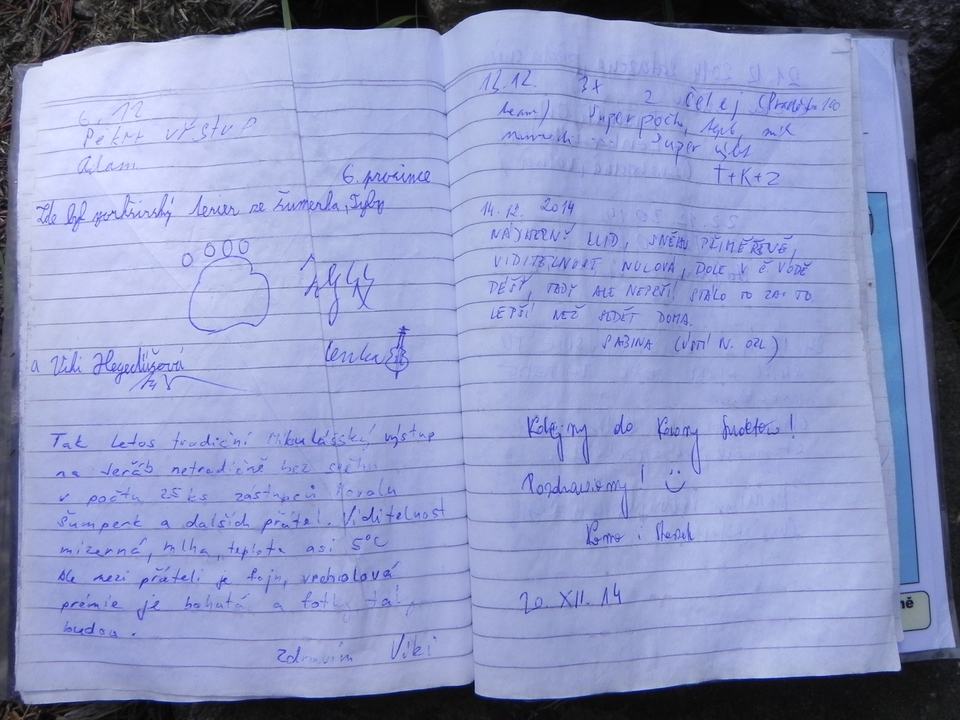 6. 12
Pěkný výstup
Adam
6. prosince
Zde byl yorkšírský terier ze Šumperka,
a Viki Hegedüšová
Lenka
Tak letos tradiční Mikulášský výstup
na Jeřáb netradičně bez sněhu
v počtu 25 ks zástupců Horalu
Šumperk a dalších přátel. Viditelnost
mizerná, mlha, teplota asi 5°C
Ale mezi přáteli je fajn, vrcholová
prémie je bohatá a fotky
budou.
Zdravím Viki
13.12. 3x z Čelej
team) Super
Super
T+K+Z
14. 12. 2014
NÁDHERNÝ KLID, SNĚHU PŘIMĚŘENĚ,
VIDITELNOST NULOVÁ, DOLE V Č. VODĚ
DÉŠŤ, TADY ALE NEPRŠÍ. STÁLO TO ZA TO
LEPŠÍ NEŽ SEDĚT DOMA.
SABINA (ÚSTÍ N. ORL)
Kolejny do Korony Sudetów!
Pozdrawiamy!
i
20. XII. 14
ně